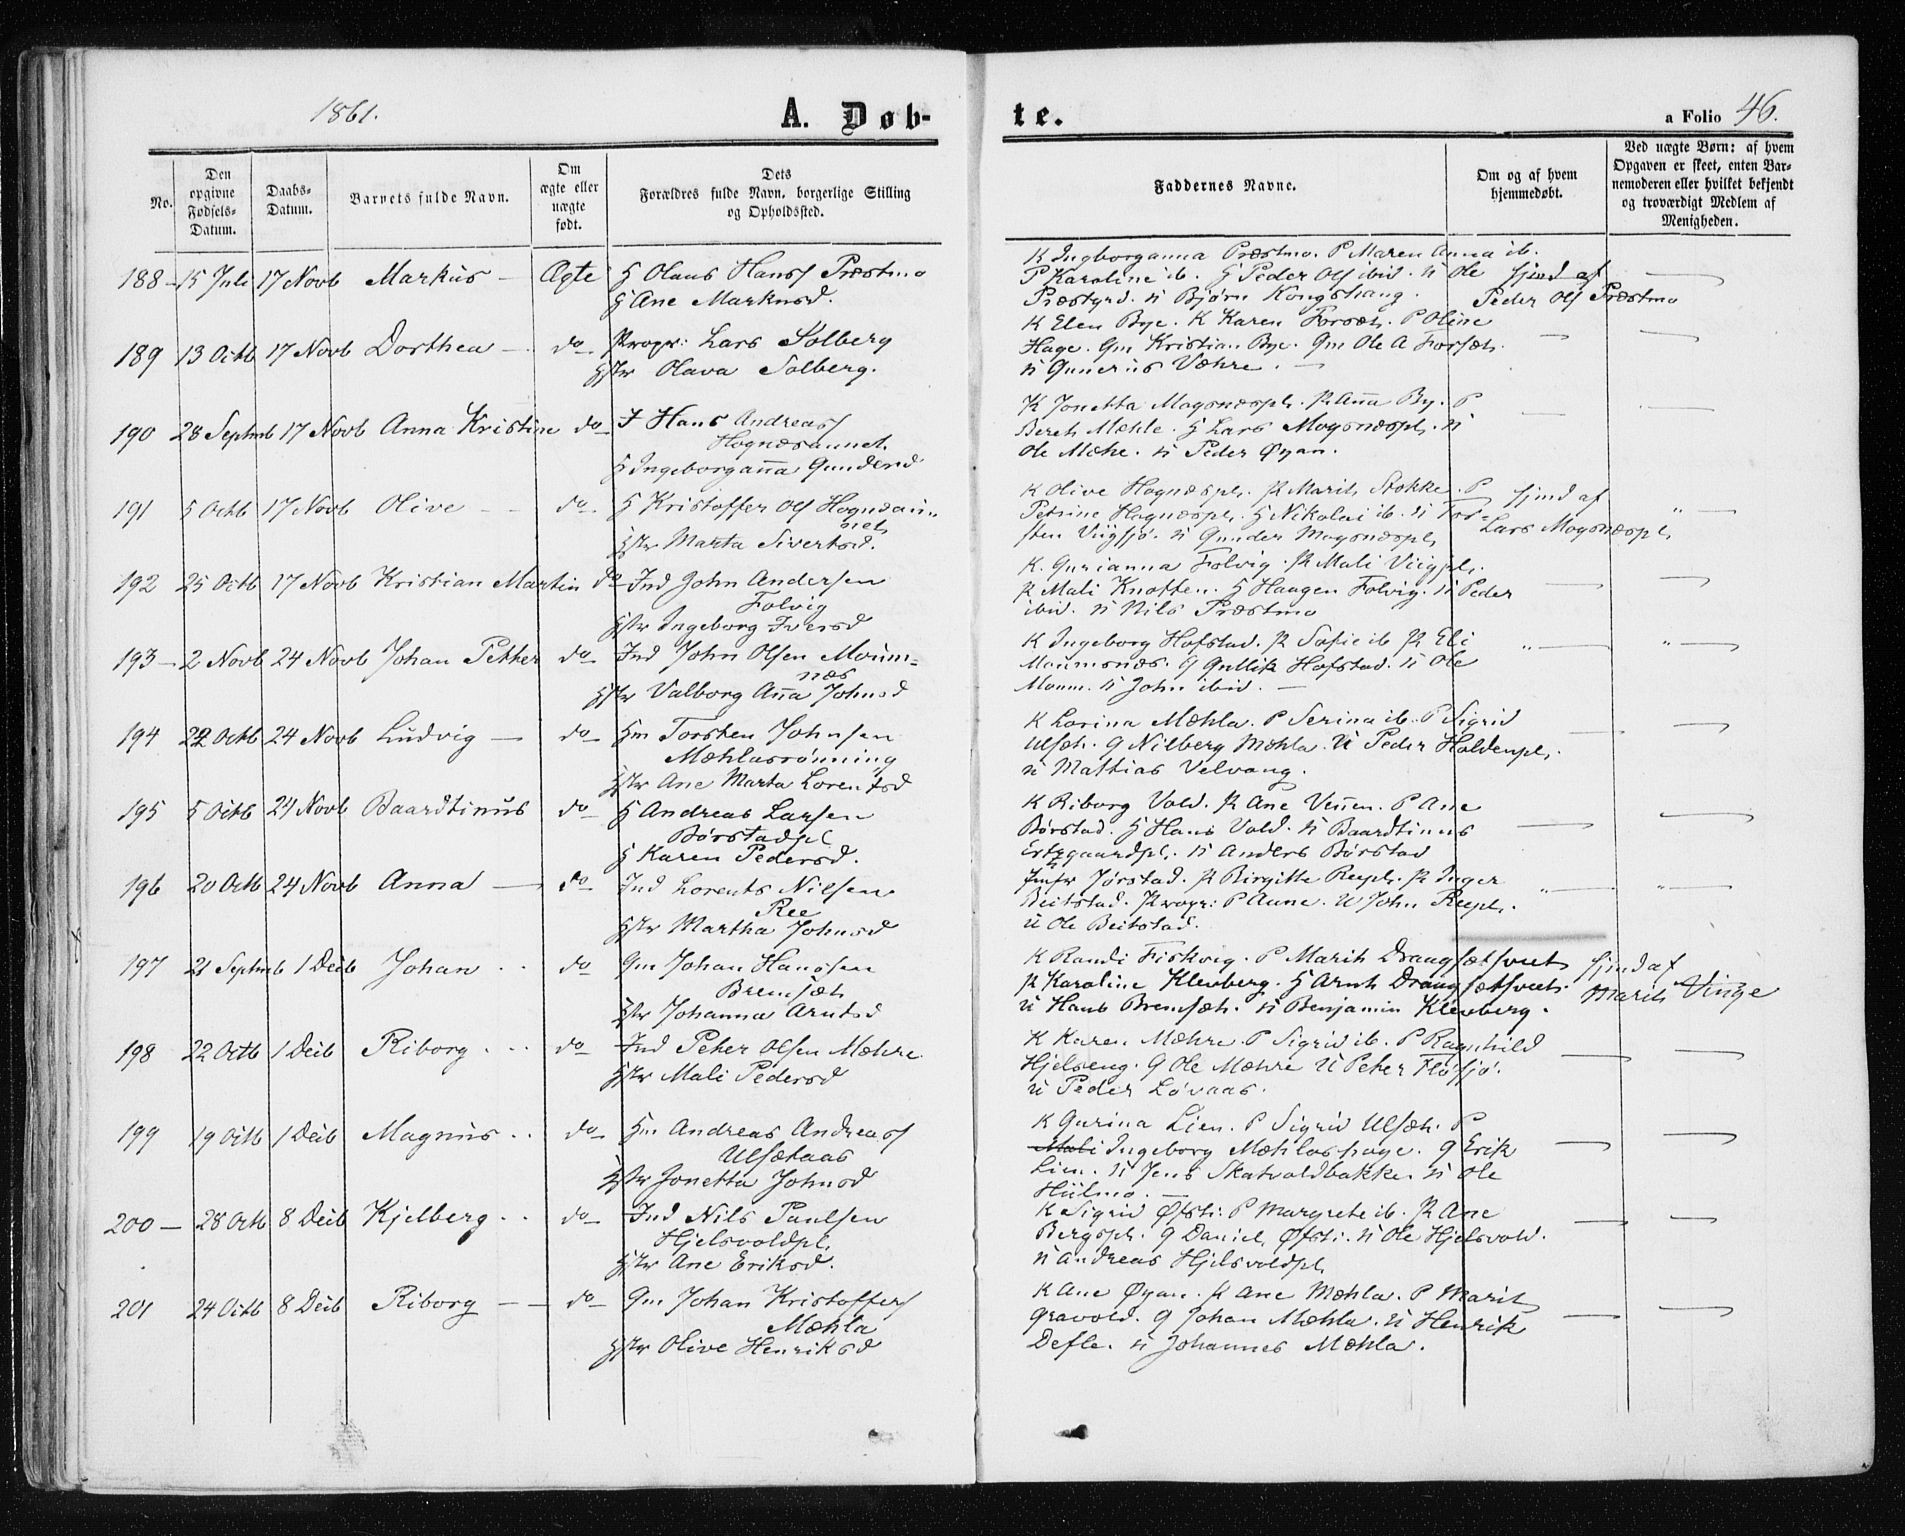 1861.
A. Døb-
te.
a Folio 46.
No.
Den opgivne Fødsels-Datum.
Daabs-Datum.
Barnets fulde Navn.
Om ægte eller uægte født.
Dets Forældres fulde Navn, borgerlige Stilling og Opholdssted.
Faddernes Navne.
Om og af hvem hjemmedøbt.
Ved uægte Børn: af hvem Opgaven er skeet, enten Barnemoderen eller hvilket bekjendt og troværdigt Medlem af Menigheden.
188 - 15 Juli 17 Novb Markus - Ægte
Olaus Hans Præstmo
Ane Markusd.
K Ingeborganna Præstmo. P Maren Anna ib.
P Karoline ib. G Peder Ols ibid. U Ole
Præstgrd. U Bjørn Kongshaug.
hjmd af
Peder Ols Præstmo
189 13 Octb 17 Novb Dorthea - do
Propr: Lars Solberg
Hstr Olava Solberg.
K Elen Bye. K Karen Forsæt. P Oline
Hage. Gm Kristian Bye. Gm Ole A Forsæt.
U Gunerius Væhre. -
190 28 Septmb 17 Novb Anna Kristine do
I Hans Andreas
Hognæsaunet.
Ingeborganna Gundersd
K Jonetta Mogsnæspl. P Anna By. P
Bereth Mæhle. Lars Mogsnæspl. U
Ole Mæhe. U Peder Øyan.
191 5 Octb 17 Novb Olive - - do.
Kristoffer Ols Hognæsau-
net
Hstr Marta Sivertsd.
K Olive Hognæspl. P Marit Stokke. P
Petrine Hognæspl. Nikolai ib. U Tor-
sten Viigsjø. U Gunder Mogsnæspl.
hjmd af
Lars Mogsnæspl.
192 25 Octb 17 Novb Kristian Martin do
Ind John Andersen
Folvig
Hstr Ingeborg Iversd
K. Gurianna Folvig. P Mali Viigpl.
P Mali Knotten. Haagen Folvig. U Peder
ibid. U Nils Præstmo
193 - 2 Novb 24 Novb Johan Petter do
Ind John Olsen Moum-
næs
Hstr Valborg Anna Johnsd
K Ingeborg Hofstad. P Sofie ib P Eli
Moumsnæs. G Gullik Hofstad. U Ole
Moum. U John ibid. -
194 22 Octb 24 Novb Ludvig - do
Hm Torsten Johnsen
Mæhlasrønning
Hstr Ane Marta Lorentsd
K Lorina Mæhla. P Serina ib. P Sigrid
Ulsæt. G Nilberg Mæhla. U Peder Haldenpl.
U Mathias Velvang.
195 5 Octb 24 Novb Baardtinus do
Andreas Larsen
Børstadpl
Karen Pedersd.
K Riborg Vold. P Ane Vennen. P Ane
Børstad. Hans Vold. U Baardtinus
Ertzgaardpl. U Anders Børstad
196 20 Octb 24 Novb Anna - do
Ind Lorents Nilsen
Ree
Hstr Martha Johnsd
Jørstad. P Birgitte Reepl. P Inger
Beitstad. Propr: P Aune. U John Reepl.
U Ole Beitstad.
197 21 Septmb 1 Decb Johan . . do
Gm Johan Hansen
Bremsæt
Hstr Johanna Arntsd
K Randi Fiskvig. P Marit Draugsætsveet
P Karoline Klevberg. Arnt Draugsætsveet.
U Hans Bremsæt. U Benjamin Klevberg.
hjmd af
Marit Vinge
198 22 Octb 1 Decb Riborg . . . do
Ind Peter Olsen Mæhre
Hstr Mali Pedersd
K Karen Mæhre. P Sigrid ib. P Ragnhild
Hjelseng. G Ole Mæhre U Peter Fløsjø.
U Peder Løvaas.
199 19 Octb 1 Decb Magnus . . do
Hm Andreas Andreas
Ulsætaas
Hstr Jonetta Johnsd
K Gurina Lien. P Sigrid Ulsæt. P
Mali Ingeborg Mæhlashage. G Erik
Lien. U Jens Skatvoldbakke. U Ole
Hiilmo. -
200 - 28 Octb 8 Decb Kjelberg . . do
Ind Nils Paulsen
Hjelsvoldpl.
Hstr Ane Eriksd.
K Sigrid Øfsti. P Margrete ib. P Ane
Bergspl. G Daniel Øfsti. U Ole Hjelsvold.
U Andreas Hjelsvoldpl.
201 24 Octb 8 Decb Riborg - - do
Gm Johan Kristoffers
Mæhla
Hstr Olive Henriksd
K Ane Øyan. P Ane Mæhla. P Marit
Gravold. G Johan Mæhla. U Henrik
Defle. U Johannes Mæhla.